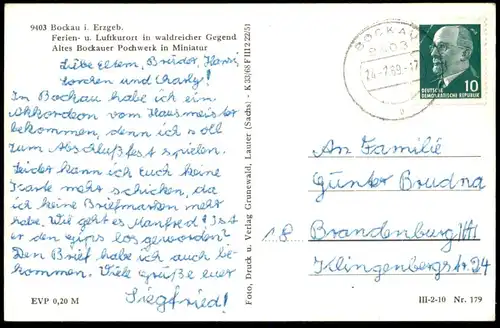 9403 Bockau i. Erzgeb.
Ferien- u. Luftkurort in waldreicher Gegend
Altes Bockauer Pochwerk in Miniatur
Liebe Eltern, Brüder, Harri,
Lorchen und Charly!
In Bockau habe ich ein
Akkordeon vom Hausmeister
bekommen, denn ich soll
zum Abschlußfest spielen.
Leider kann ich euch keine
Karte mehr schicken, da
ich keine Briefmarken mehr
habe. Wie geht es Manfred? Ist
er den Gips los geworden?
Den Brief habe ich auch be-
kommen. Viele Grüße euer
Siegfried!
EVP 0,20 M
Foto, Druck u. Verlag Grunewald, Lauter (Sachs) - K 23/68 F III 2 22/51
BOCKAU
9403
24.-7.69.-17
a
10
DEUTSCHE
DEMOKRATISCHE REPUBLIK
An Familie
Günter Brudna
18 Brandenburg/H
Klingenbergstr. 24
III-2-10 Nr. 179